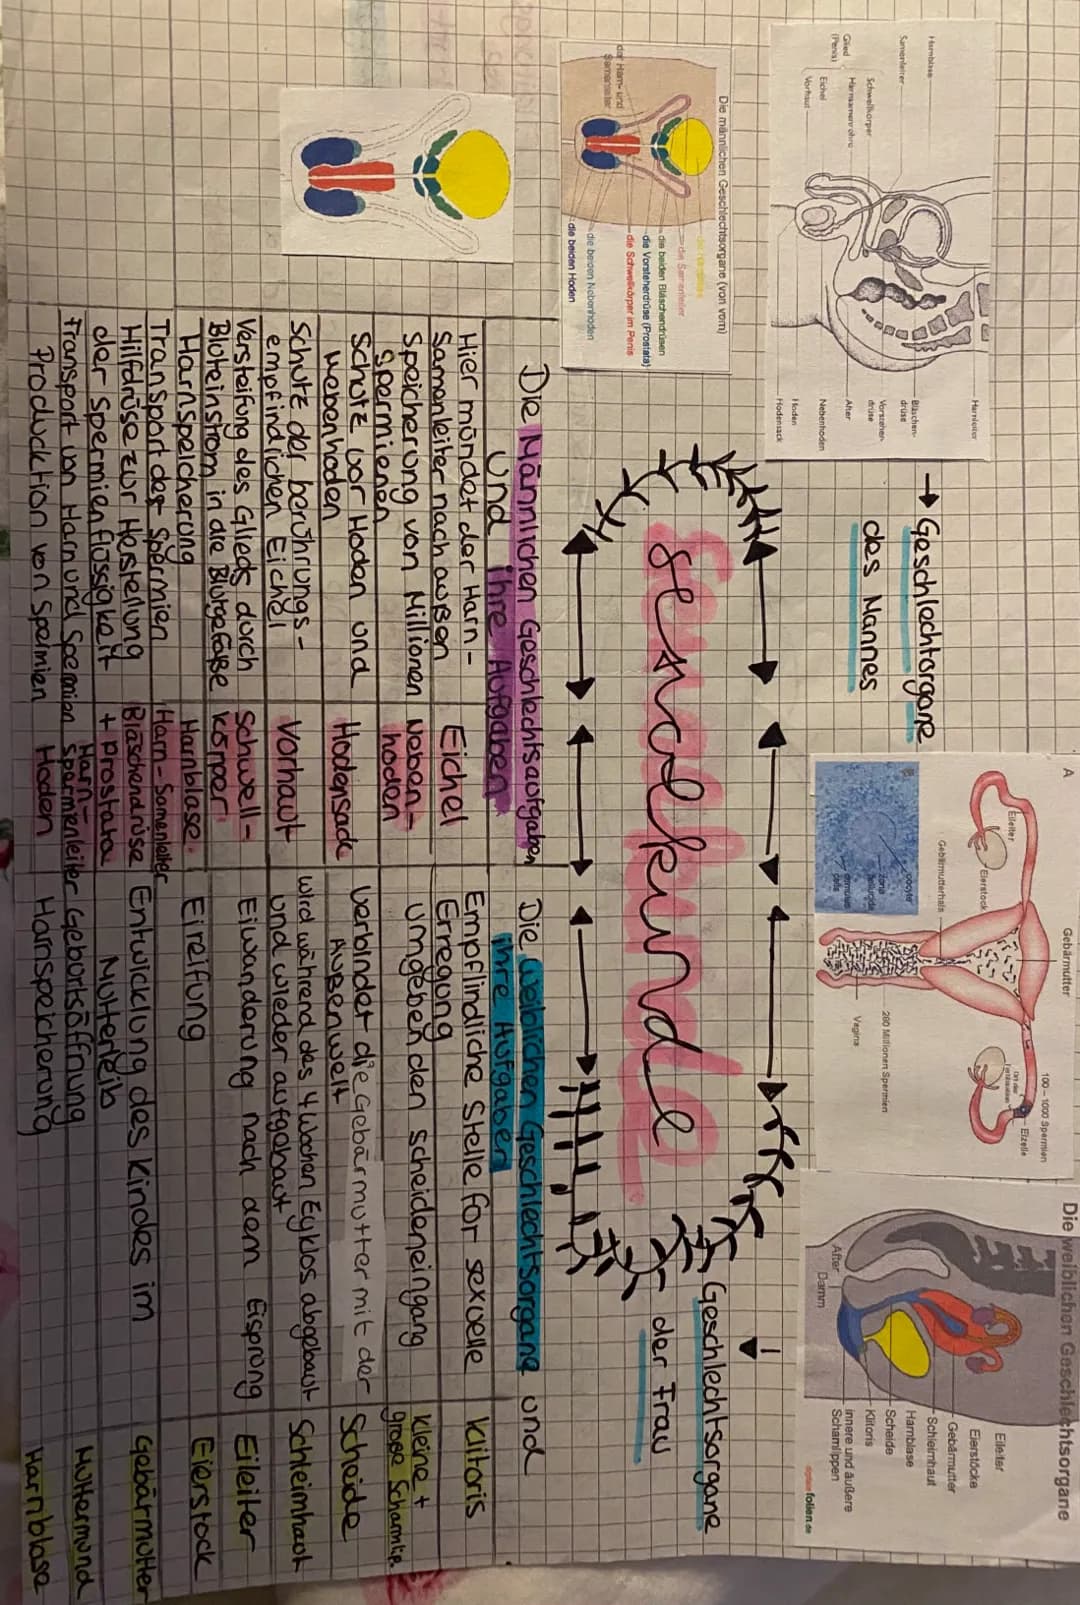 Harnblase
Samenleiter
Schwellkörper
Harnsamenröhre
Glied
(Penis)
Eichel
Vorhaut
Harnleiter
Bläschen-
drüse
Vorsteher-
drüse
After
Nebenhoden
Hoden
Hodensack
→ Geschlechtorgane
des Mannes
A
Gebärmutter
100 – 1000 Spermien
Eileiter
Eierstock
Eizelle
Gebärmutterhals
280 Millionen Spermien
Vagina
oocyte
zona
pellucida
cumulus
cells
Die weiblichen Geschlechtsorgane
Eileiter
Eierstöcke
Gebärmutter
Schleimhaut
Harnblase
Scheide
Klitoris
innere und äußere
Schamlippen
After
Damm
folien.de
Die männlichen Geschlechtsorgane (von vorn)
die Samenleiter
die beiden Bläschendrüsen
die Vorsteherdrüse (Prostata)
die Schwellkörper im Penis
die beiden Nebenhoden
die beiden Hoden
der Harn- und
Samenleiter
Sexualkunde
Geschlechtsorgane
der Frau
Die Männlichen Geschlechtsaufgaben
und ihre Aufgaben
Hier mündet der Harn-
Samenleiter nach außen
Eichel
Speicherung von Millionen
Spermienen
Neben-
hoden
Schutz vor Hoden und
Nebenhoden
Hodensack
Schutz der berührungs-
empfindlichen Eichel
Vorhaut
Versteifung des Glieds durch
Bluteinstrom in die Blutgefäße
Schwell-
körper
Harnspeicherung
Harnblase
Transport der Spermien
Harn-Samenleiter
Hilfdrüse zur Herstellung
der Spermienflüssigkeit
Bläschendrüse
+ Prostata
Transport von Harn und Spermien
Harn-
Sparmenleiter
Producktion von Spelmien
Hoden
Die weiblichen Geschlechtsorgane und
ihre Aufgaben
Empflindliche Stelle for sexuelle
Erregung
Klitoris
umgeben den scheideneingang
Kleine +
große Schamlip.
verbindet die Gebärmutter mit der
Außenwelt
Scheide
wird während des 4 wochen Eyklos abgebaut
und wieder aufgebaut
Schleimhaut
Eiwanderung nach dem Eisprung
Eileiter
Eireifung
Eierstock
Entwicklung des Kindes im
Mutterleib
Gebärmutter
Geburtsöffnung
Muttermund
Harnspeicherung
Harnblase